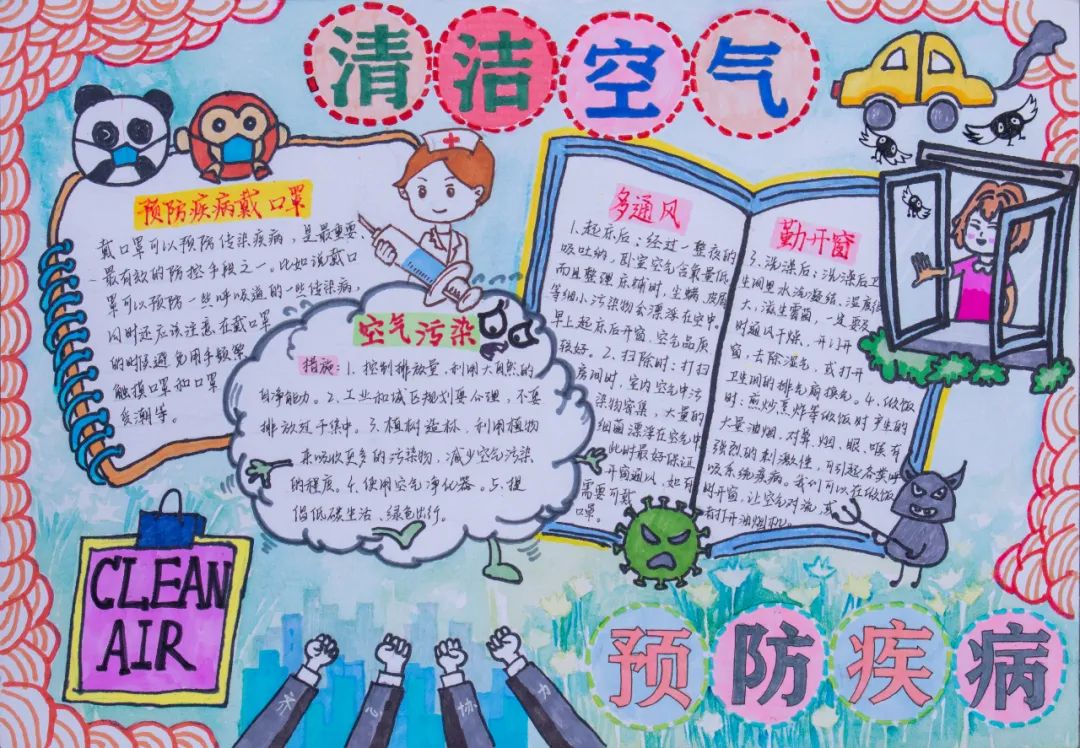 清洁空气
预防疾病戴口罩
戴口罩可以预防传染疾病，是最重要、
最有效的防控手段之一。比如说戴口
罩可以预防一些呼吸道的一些传染病，
同时还应该注意在戴口罩
的时候避免用手频繁
触摸口罩和口罩
反潮等。
空气污染
措施：1、控制排放量，利用大自然的
自净能力。2、工业和城区规划要合理，不要
排放过于集中。3、植树造林，利用植物
来吸收更多的污染物，减少空气污染
的程度。4、使用空气净化器。5、提
倡低碳生活、绿色出行。
多通风
1、起床后：经过一整夜的
吸吐纳，卧室空气含氧量低，
而且整理床铺时，尘螨、皮屑
等细小污染物会漂浮在空中。
早上起床后开窗，空气品质
较好。2、扫除时：打扫
房间时，室内空气中污
染物密集，大量的
细菌漂浮在空气中
此时最好保证
开窗通风，如有
需要可戴
口罩。
勤开窗
3、洗澡后：洗澡后卫
生间里水汽凝结、湿度
大、滋生霉菌，一定要及
时通风干燥，开门开
窗，去除湿气，或打开
卫生间的排气扇换气。4、做饭
时：煎炒烹炸等做饭时产生的
大量油烟，对鼻、烟、眼、喉有
强烈的刺激性，可引起各类呼
吸系统疾病。我们可以在做饭
时开窗，让空气对流，
有打开油烟机。
CLEAN
AIR
齐心协力
预防疾病